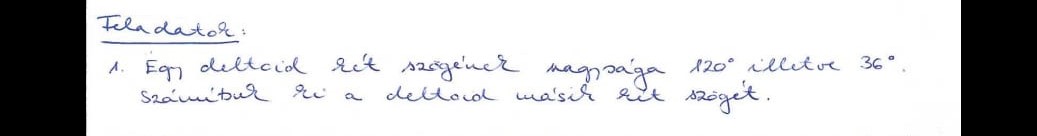 Feladatok:
1. Egy deltoid két szögének nagysága 120° illetve 36°.
Számítsuk ki a deltoid másik két szögét.